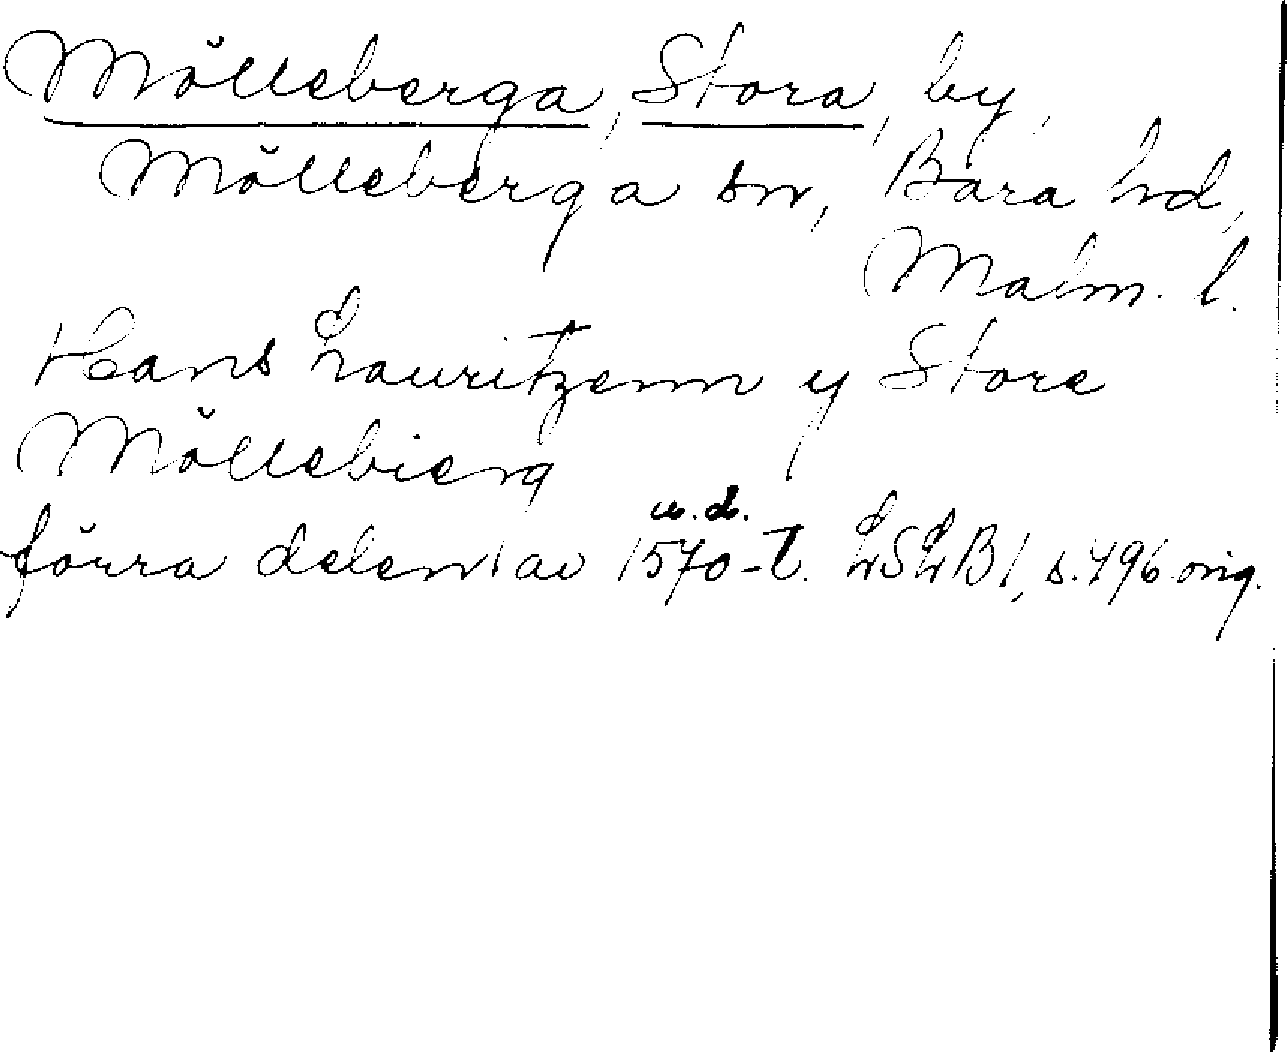 Mölleberga, Stora, by,
Mölleberga sn, Bara hd,
Malm. l.
Hans Lauritzenn y Store
Möllebierg
u.d.
förra delen av 1570-t. LSLB1, s. 496 orig.